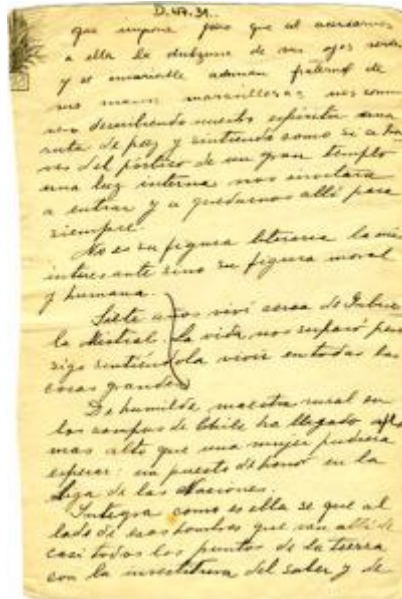 D.47.31.
que impone pero que al acercarnos
a ella la dulzura de sus ojos verdes
y el invariable ademan fraternal de
sus manos maravillosas nos
describiendo nuestro espíritu una
ruta de paz y sintiendo como si a tra
ves del pórtico de un gran templo
una luz interna nos invitara
a entrar y a quedarnos allí para
siempre.
No es su figura literaria la más
interesante sino su figura moral
y humana.
Siete años viví cerca de Gabrie
la Mistral. La vida nos separó pero
sigo sintiéndola vivir en todas las
cosas grandes.
De humilde maestra rural en
los campos de Chile ha llegado a lo
mas alto que una mujer pudiera
esperar: un puesto de honor en la
Liga de las Naciones.
Integra como es ella se que al
lado de esos hombres que van allí de
casi todos los puntos de la tierra
con la investidura del saber y de